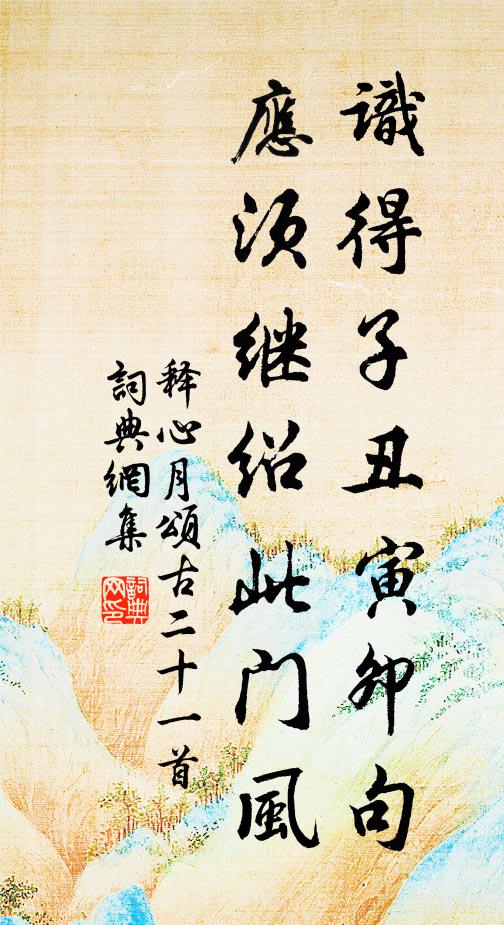 識得子丑寅卯句
應須继绍此门風
释心月頌古二十一首
詞典網集
詞典
网印